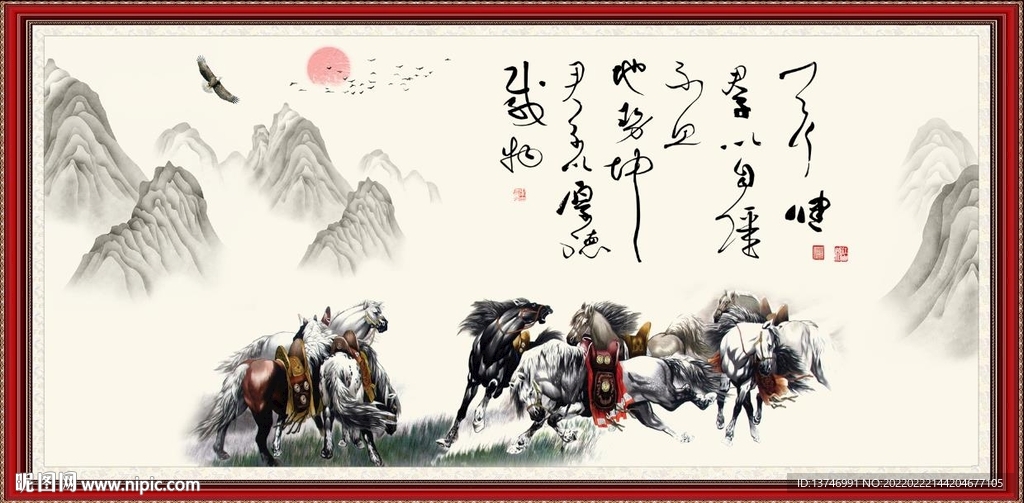 天行健
君子以自强
不息
地势坤
君子以厚德
载物
昵图网 www.nipic.com
ID:13746991 NO:20220222144204677105